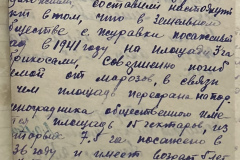 составили настоящий
в том, что в земельном
обществе с. Журавки посаженой
в 1941 году на площади 3 га
абрикосами, совершенно погиб
от морозов, в связи
чем площадь передана на пор
виноградника общественного име
площадь 15 гектаров, из
торых 7,5 га посажено в
36 году и имеет возраст 8 лет